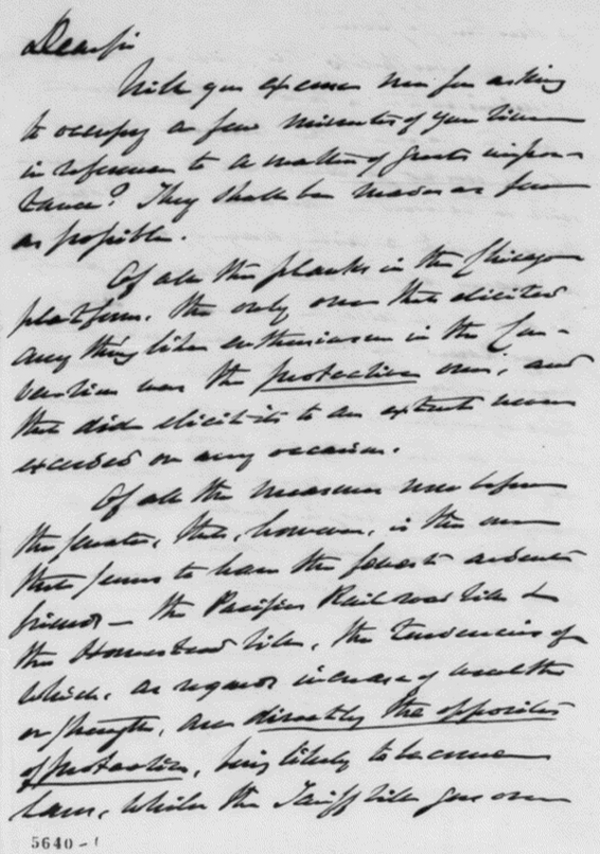 Dear Sir
Will you excuse me for asking
to occupy a few minutes of your time
in reference to a matter of great impor-
tance? They shall be made as few
as possible.
Of all the planks in the Chicago
platform, the only one that elicited
any thing like enthusiasm in the Con-
vention was the protective one; and
that did elicit it to an extent never
exceeded on any occasion.
Of all the measures now before
the Senate, this, however, is the one
that seems to have the fewest ardent
friends — the Pacific Rail road bill &
the Homestead bill, the tendencies of
which, as regards increase of wealth
or strength, are directly the opposites
of protection, being likely to become
laws, while the Tariff bill goes over
5640-1